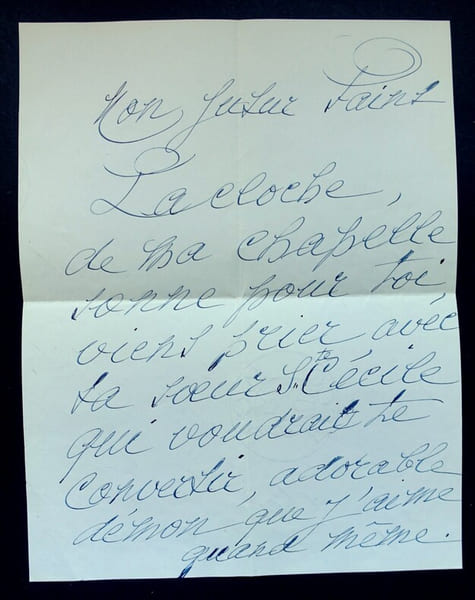 Mon futur Saint
La cloche,
de ma chapelle
sonne pour toi,
viens prier, avec
ta sœur Ste Cécile
qui voudrait te
convertir, adorable
démon que j'aime
quand même.